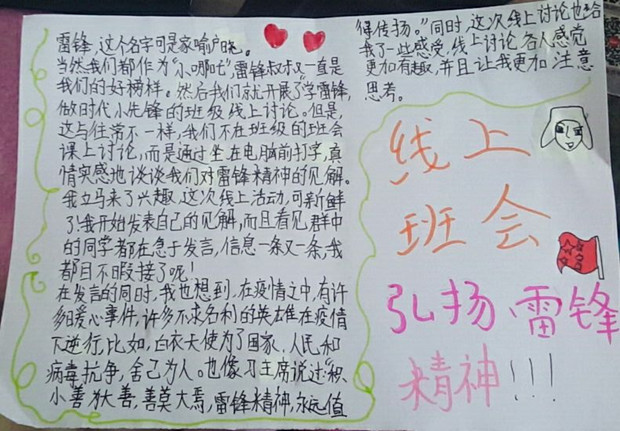 雷锋，这个名字可是家喻户晓。
当然我们都作为“小哪吒”，雷锋叔叔一直是
我们的好榜样。然后我们就开展了“学雷锋，
做时代小先锋”的班级线上讨论。但是，
这与往常不一样，我们不在班级的班会
课上讨论，而是通过坐在电脑前打字，真
情实感地谈谈我们对雷锋精神的见解。
我立马来了兴趣，这次线上活动，可新鲜
了！我开始发表自己的见解，而且看见群中
的同学都在急于发言，信息一条又一条，我
都目不暇接了呢！
在发言的同时，我也想到，在疫情之中，有许
多爱心事件，许多不求名利的英雄在疫情
下逆行，比如，白衣天使为了国家、人民和
病毒抗争，舍己为人。也像习主席说过：“积
小善为大善，善莫大焉，雷锋精神，永远值
得传扬。”同时，这次线上讨论也给
我了一些感受，线上讨论各人感觉
更加有趣，并且让我更加注意
思考。
线上
班会
弘扬雷锋
精神！！！